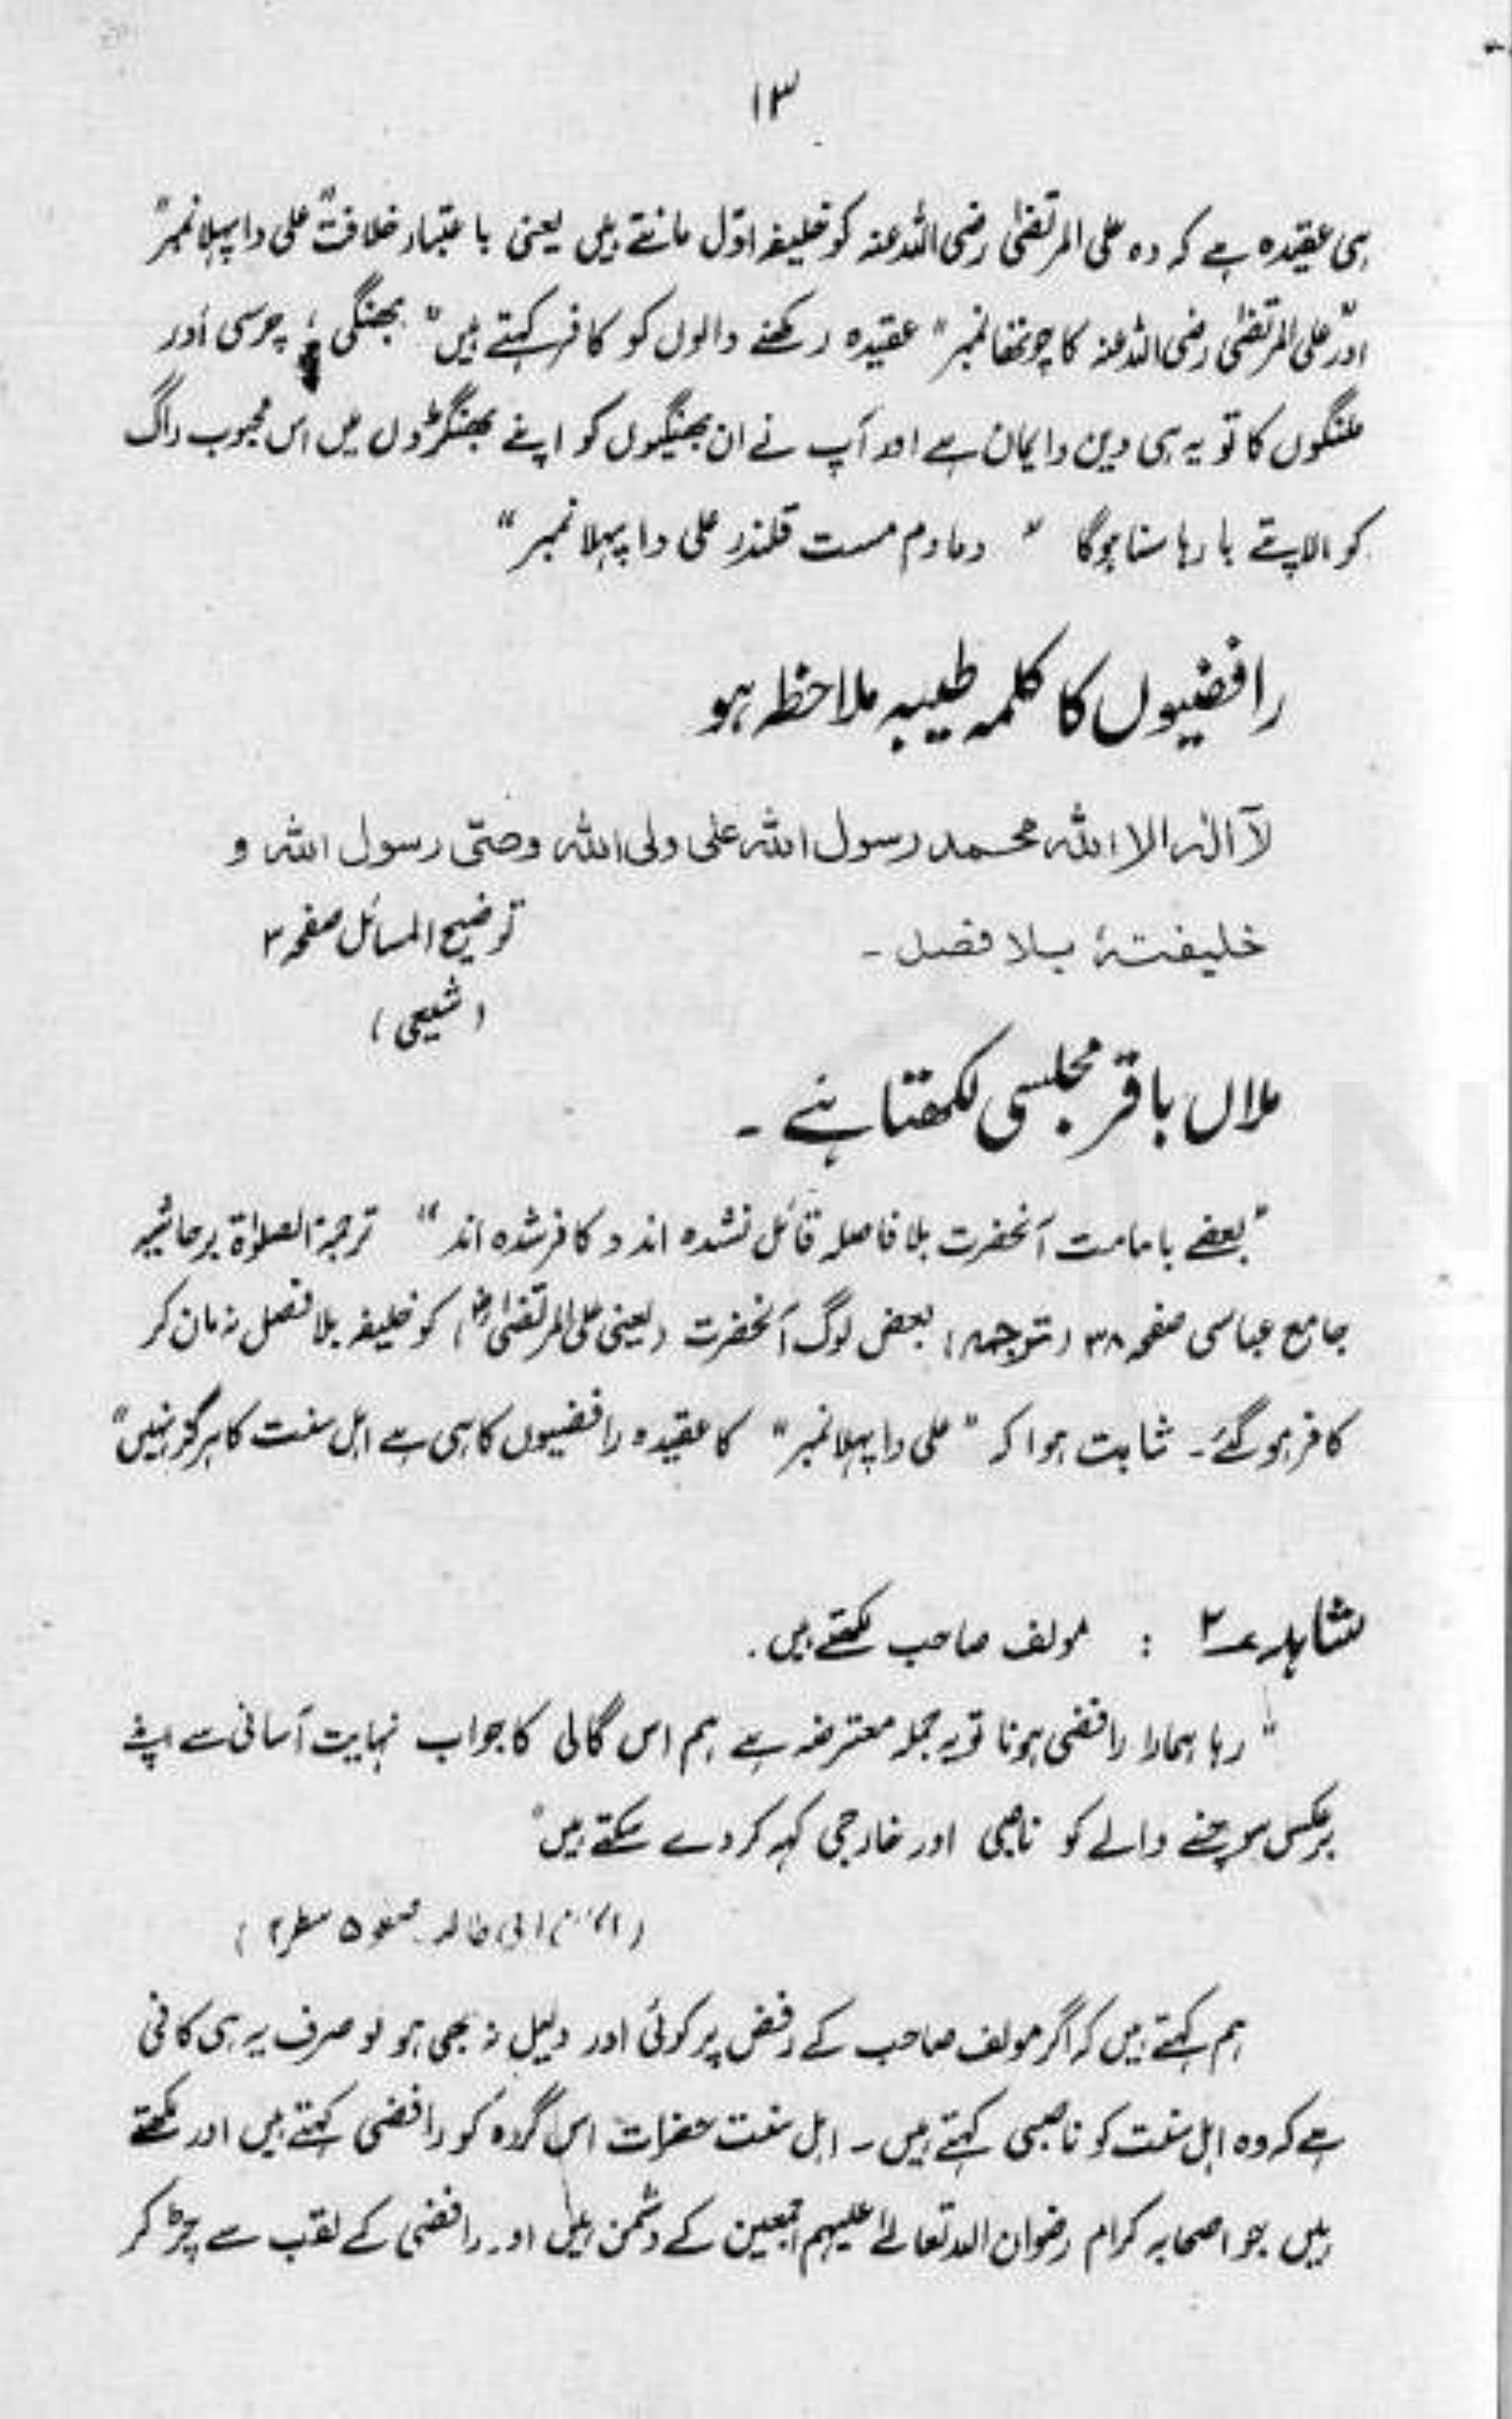 ۱۳
ہی عقیدہ ہے کہ وہ علی المرتضیٰ رضی اللہ عنہ کو خلیفہ اوّل مانتے ہیں یعنی با عتبار خلافت "علی دا پہلا نمبر"
اور علی المرتضیٰ رضی اللہ عنہ کا چوتھا نمبر" عقیدہ رکھنے والوں کو کافر کہتے ہیں" بھنگی، چرسی اور
ملنگوں کا تو یہ ہی دین و ایمان ہے اور آپ نے ان بھنگیوں کو اپنے بھنگڑوں میں اس محبوب راگ
کو الاپتے بارہا سنا ہوگا " دمادم مست قلندر علی دا پہلا نمبر"
رافضیوں کا کلمہ طیبہ ملاحظہ ہو
لآ الٰہ الا اللہ محمد رسول اللہ علی ولی اللہ وصتی رسول اللہ و
خلیفتہٗ بلا فصل ۔
توضیح المسائل صفحہ ۳
(شیعی)
ملاں باقر مجلسی لکھتا ہے ۔
"بعضے بامامت آنحضرت بلا فاصلہ قائل نشدہ اند و کافر شدہ اند" ترجمۃ الصلوٰۃ بر حاشیہ
جامع عباسی صفحہ ۳۸ (ترجمہ) بعض لوگ آنحضرت (یعنی علی المرتضیٰ رض) کو خلیفہ بلا فصل نہ مان کر
کافر ہو گئے۔ ثابت ہوا کہ "علی دا پہلا نمبر" کا عقیدہ رافضیوں کا ہی ہے اہل سنت کا ہرگز نہیں"
شاہد ۲ : مولف صاحب لکھتے ہیں.
"رہا ہمارا رافضی ہونا تو یہ جملہ معترضہ ہے ہم اس گالی کا جواب نہایت آسانی سے اپنے
برعکس سوچنے والے کو ناصبی اور خارجی کہہ کر دے سکتے ہیں"
( ابی طالب صفحہ ۵ سطر ۲)
ہم کہتے ہیں کہ اگر مولف صاحب کے رفض پر کوئی اور دلیل نہ بھی ہو تو صرف یہ ہی کافی
ہے کہ وہ اہل سنت کو ناصبی کہتے ہیں ۔ اہل سنت حضرات اس گروہ کو رافضی کہتے ہیں اور لکھتے
ہیں جو اصحابہ کرام رضوان اللہ تعالےٰ علیہم اجمعین کے دشمن ہیں اور رافضی کے لقب سے چڑ کر